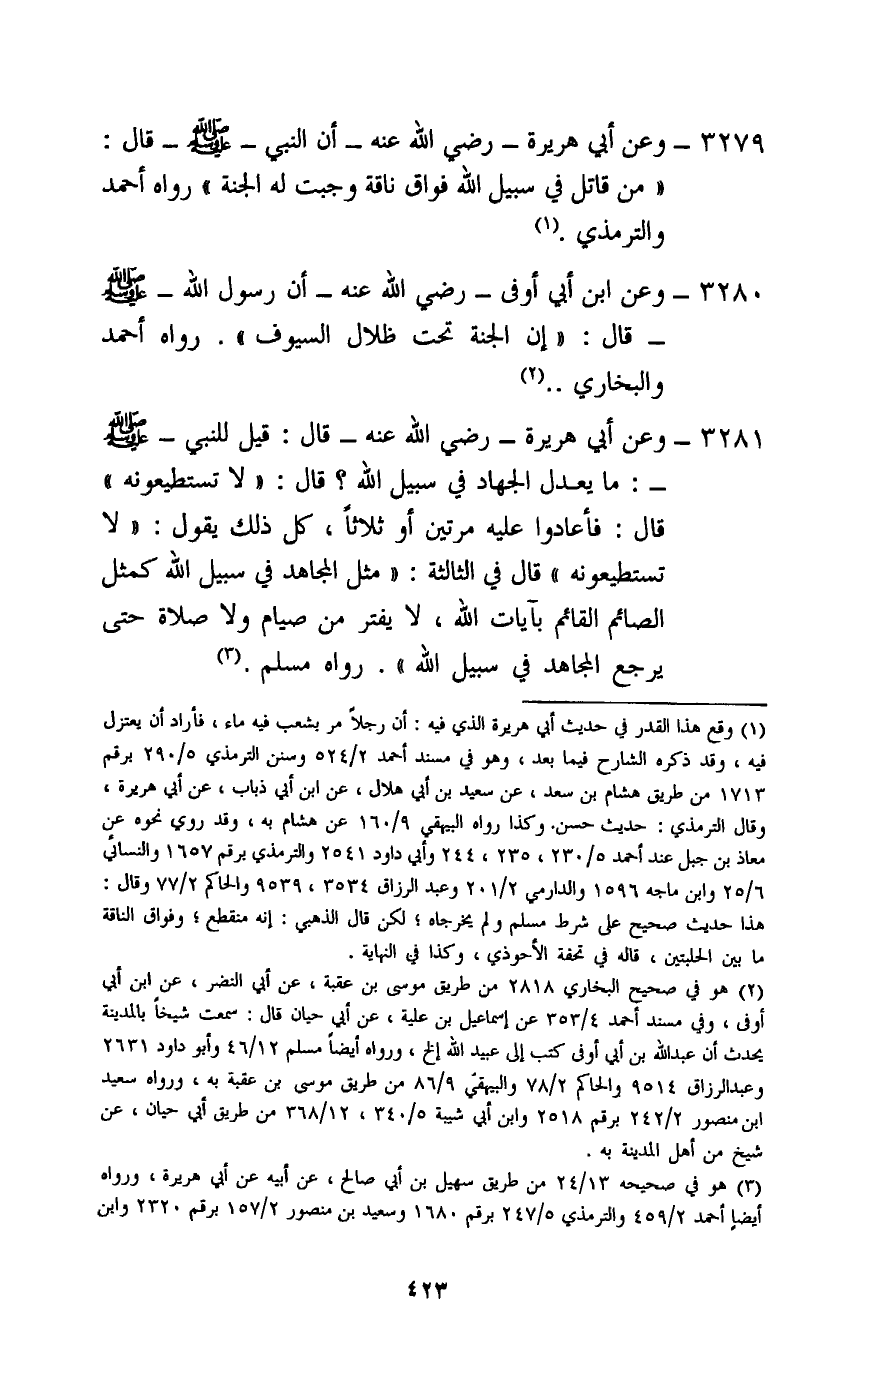 ٣٢٧٩ ــ وعن أبي هريرة ــ رضي الله عنه ــ أن النبي ــ ﷺ ــ قال :
« من قاتل في سبيل الله فواق ناقة وجبت له الجنة » رواه أحمد
والترمذي .(١)
٣٢٨٠ ــ وعن ابن أبي أوفى ــ رضي الله عنه ــ أن رسول الله ــ ﷺ
ــ قال : « إن الجنة تحت ظلال السيوف » . رواه أحمد
والبخاري ..(٢)
٣٢٨١ ــ وعن أبي هريرة ــ رضي الله عنه ــ قال : قيل للنبي ــ ﷺ
ــ : ما يعدل الجهاد في سبيل الله ؟ قال : « لا تستطيعونه »
قال : فأعادوا عليه مرتين أو ثلاثاً ، كل ذلك يقول : « لا
تستطيعونه » قال في الثالثة : « مثل المجاهد في سبيل الله كمثل
الصائم القائم بآيات الله ، لا يفتر من صيام ولا صلاة حتى
يرجع المجاهد في سبيل الله » . رواه مسلم .(٣)
(١) وقع هذا القدر في حديث أبي هريرة الذي فيه : أن رجلاً مر بشعب فيه ماء ، فأراد أن يعتزل
فيه ، وقد ذكره الشارح فيما بعد ، وهو في مسند أحمد ٥٢٤/٢ وسنن الترمذي ٢٩٠/٥ برقم
١٧١٣ من طريق هشام بن سعد ، عن سعيد بن أبي هلال ، عن ابن أبي ذباب ، عن أبي هريرة ،
وقال الترمذي : حديث حسن. وكذا رواه البيهقي ١٦٠/٩ عن هشام به ، وقد روي نحوه عن
معاذ بن جبل عند أحمد ٢٣٠/٥ ، ٢٣٥ ، ٢٤٤ وأبي داود ٢٥٤١ والترمذي برقم ١٦٥٧ والنسائي
٢٥/٦ وابن ماجه ١٥٩٦ والدارمي ٢٠١/٢ وعبد الرزاق ٣٥٣٤ ، ٩٥٣٩ والحاكم ٧٧/٢ وقال :
هذا حديث صحيح على شرط مسلم ولم يخرجاه ؛ لكن قال الذهبي : إنه منقطع ؛ وفواق الناقة
ما بين الحلبتين ، قاله في تحفة الأحوذي ، وكذا في النهاية .
(٢) هو في صحيح البخاري ٢٨١٨ من طريق موسى بن عقبة ، عن أبي النضر ، عن ابن أبي
أوفى ، وفي مسند أحمد ٣٥٣/٤ عن إسماعيل بن علية ، عن أبي حيان قال : سمعت شيخاً بالمدينة
يحدث أن عبدالله بن أبي أوفى كتب إلى عبيد الله إلخ ، ورواه أيضاً مسلم ٤٦/١٢ وأبو داود ٢٦٣١
وعبدالرزاق ٩٥١٤ والحاكم ٧٨/٢ والبيهقي ٨٦/٩ من طريق موسى بن عقبة به ، ورواه سعيد
ابن منصور ٢٤٢/٢ برقم ٢٥١٨ وابن أبي شيبة ٣٤٠/٥ ، ٣٦٨/١٢ من طريق أبي حيان ، عن
شيخ من أهل المدينة به .
(٣) هو في صحيحه ٢٤/١٣ من طريق سهيل بن أبي صالح ، عن أبيه عن أبي هريرة ، ورواه
أيضا أحمد ٤٥٩/٢ والترمذي ٢٤٧/٥ برقم ١٦٨٠ وسعيد بن منصور ١٥٧/٢ برقم ٢٣٢٠ وابن
٤٢٣